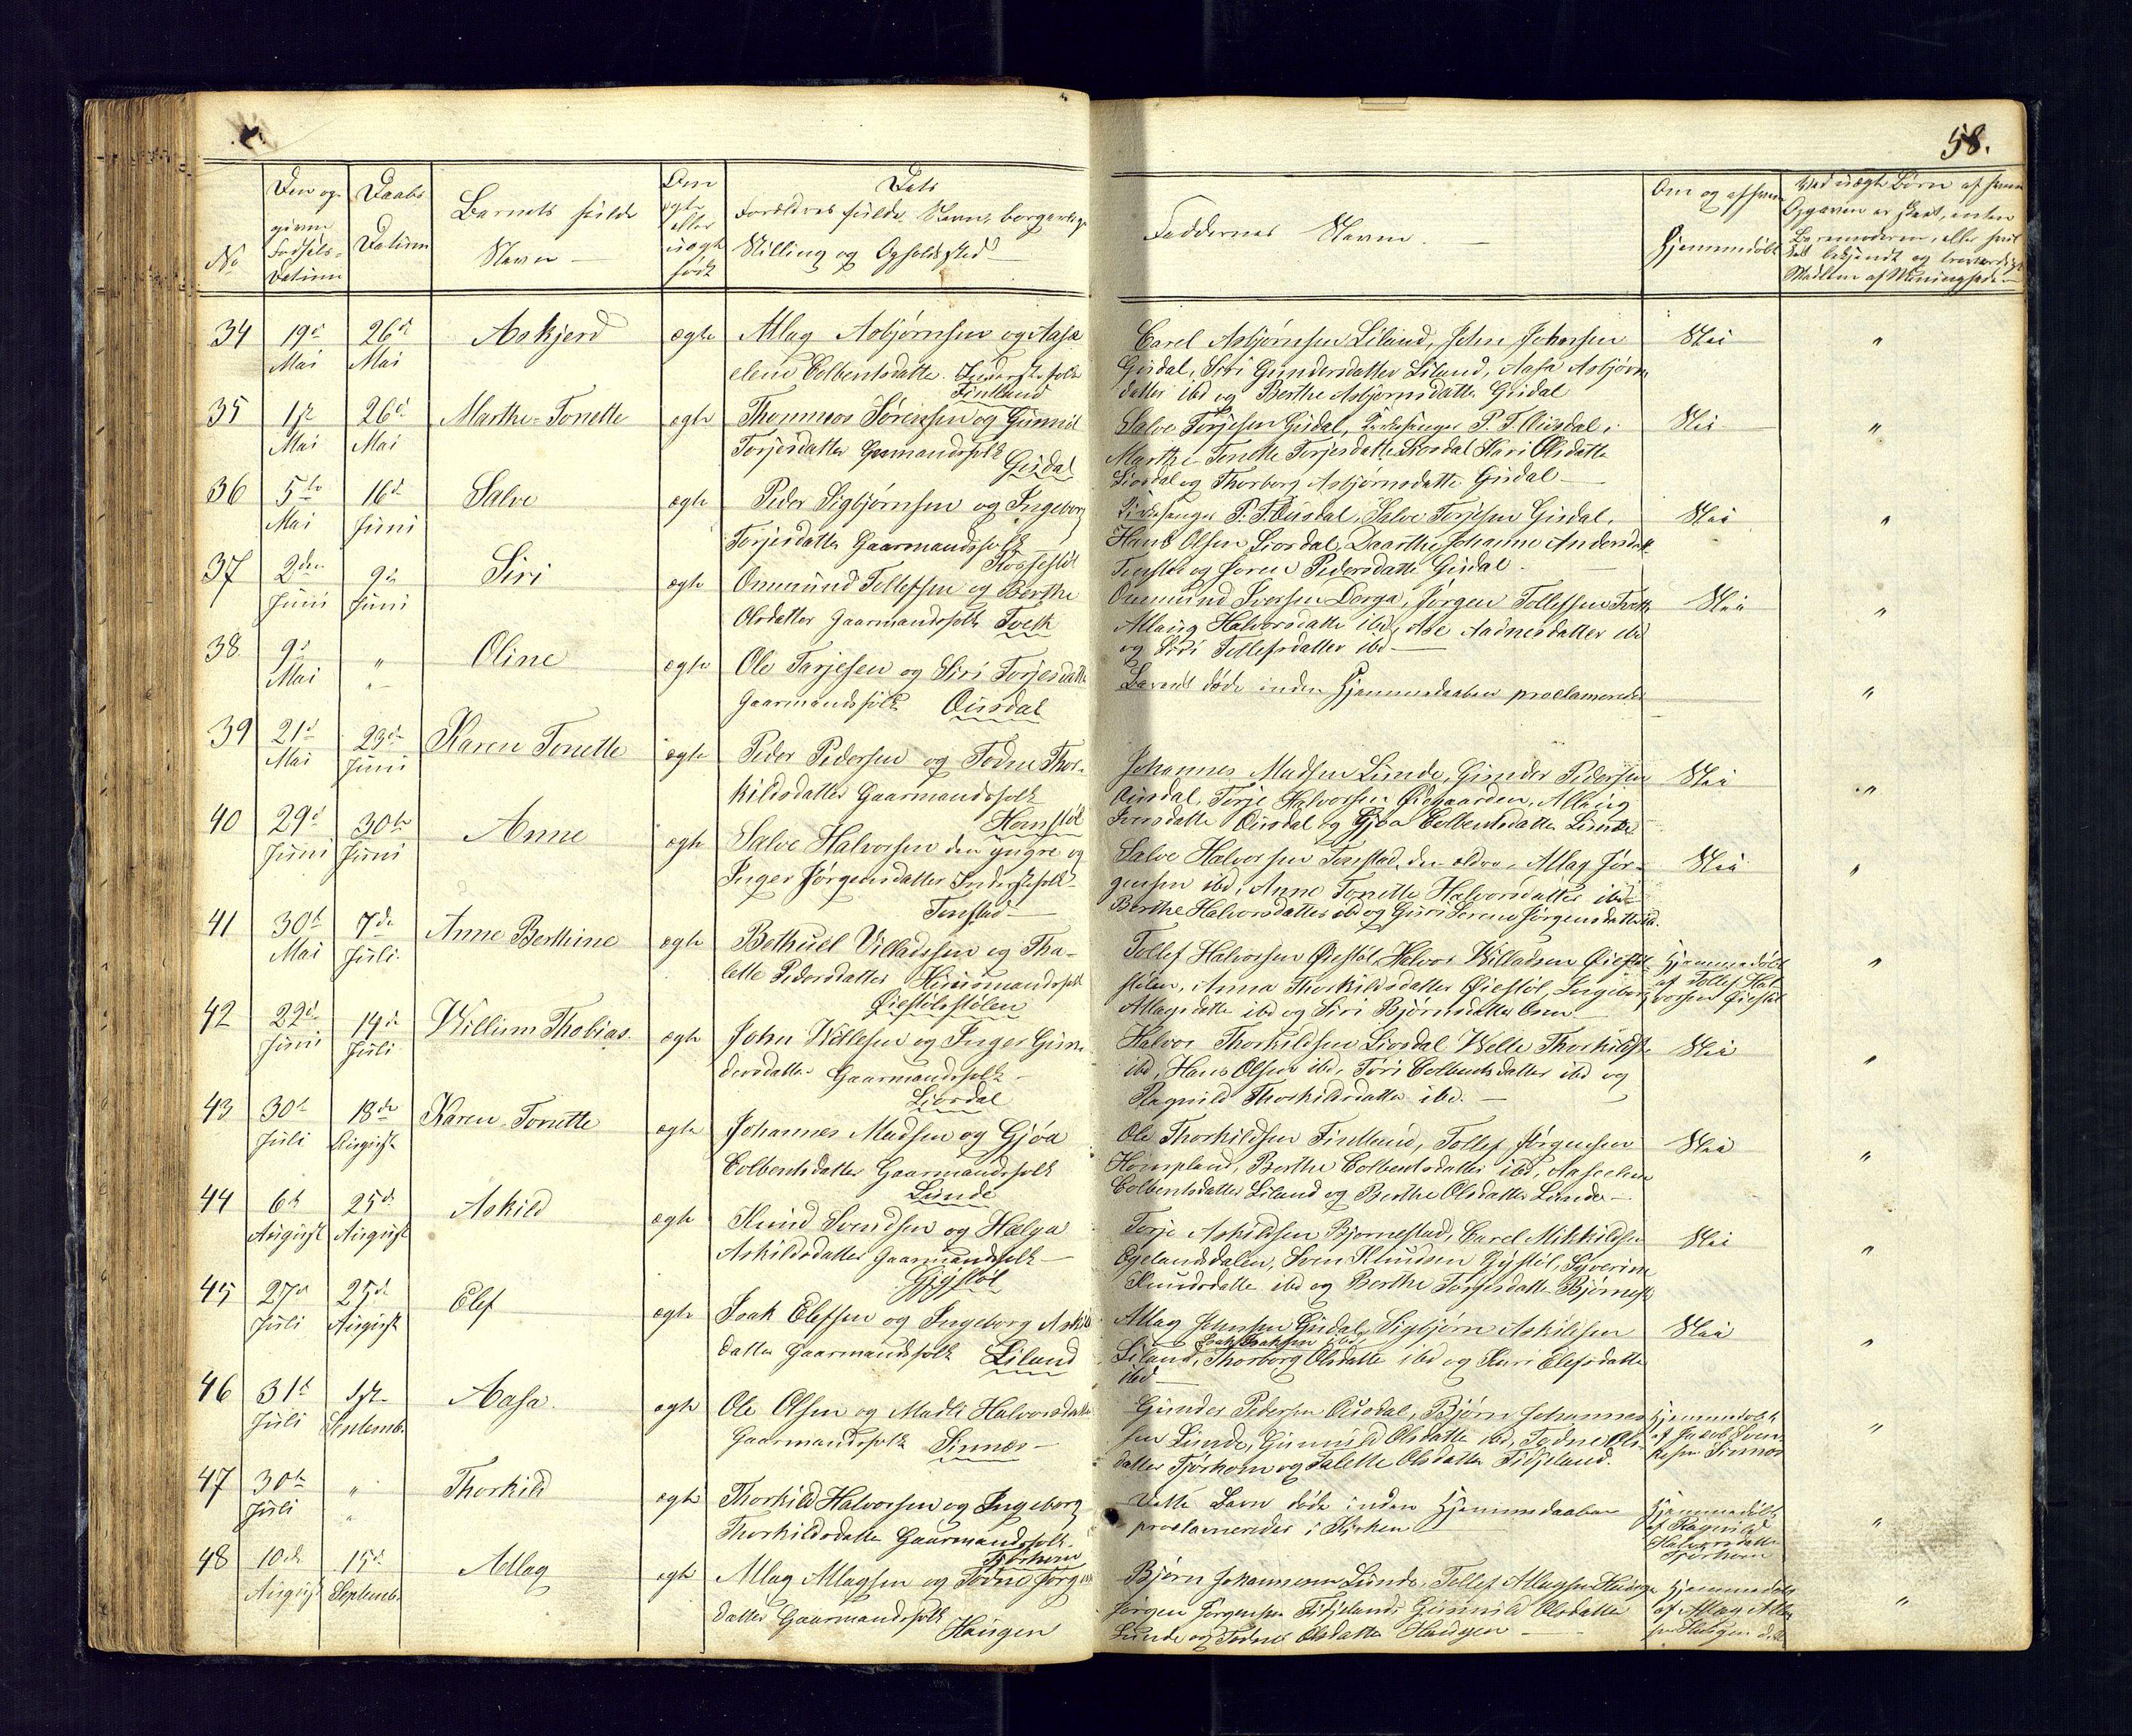 58.
No
Den op-
givne
Fødsels-
Datum
Daabs
Datum
Barnets fulde
Navn
Om
ægte
eller
uægte
født
Dets
Forældres fulde Navn, borgerlige
Stilling og Opholdssted
Faddernes Navne.
Om og af hvem
Hjemmedøbt
Ved uægte Børn af hvem
Opgaven er skeet, enten
Barnemoderen, eller
Medlem af Menigheden
34 19d Mai 26d Mai Askjerd ægte
Atlag Asbjørnsen og Aase
elene Colbentsdatter Inderstefolk
Fintland
Carel Asbjørnsen Liland, John Johnsen
Gisdal, Siri Gundersdatter Liland, Aasa Asbjørns
datter ibd og Berthe Asbjørnsdatter Gisdal
Nei "
35 1ste Mai 26d Mai Marthe Tonette ægte
Thommas Sørensen og Gunnil
Torjesdatter Gaarmandsfolk
Gisdal
Salve Torjesen Gisdal, Kirkesanger P. T. Ousdal,
Marthe Tonette Torjesdatter Liosdal Kari Olsdatter
Liosdal og Thorborg Asbjørnsdatter Gisdal
Nei "
36 5te Mai 16d Juni Salve ægte
Peder Sigbjørnsen og Ingeborg
Torjesdatter Gaarmandsfolk
Kirkesanger P. T. Ousdal, Salve Torjesen Gisdal,
Hans Olsen Liosdal, Johanne Andersdatter
og Søren Pedersdatter Gisdal
Nei "
37 2den Juni 9d Juni Siri ægte
Ommund Tollefsen og Berthe
Olsdatter Gaarmandsfolk Tveit
Ommund Iversen Dorga, Jørgen Tollefsen Tveit
Atlaug Halvorsdatter ibd, Ase Aadnesdatter ibd
og Siri Tollefsdatter ibd
Nei "
38. 9d Mai " Oline ægte
Ole Tarjesen og Siri Torjesdatter
Gaarmandsfolk Ousdal
Barnet døde inden Hjemmedaaben proclameredes
"
39 21d Mai 23de Juni Karen Tonette ægte
Peder Pedersen og Todne Thor-
kildsdatter Gaarmandsfolk
Homstøl
Johannes Madsen Lunde, Gunder Pedersen
Ousdal, Torje Halvorsen Øiegaarden, Atlaug
Iversdatter Ousdal og Gjøa Colbentsdatter Lunde
Nei "
40 29d Juni 30te Juni Anne ægte
Salve Halvorsen den yngre og
Inger Jørgensdatter Inderstefolk
Tonstad
Salve Halvorsen Tonstad den ældre, Atlag Jør-
gensen ibd, Anne Tonette Halvorsdatter ibd
Berthe Halvorsdatter ibd og Guri Serene Jørgensdatter ibd.
Nei "
41 30te Mai 7de Juli. Anne Berthine ægte
Bethuel Villadsen og Tha-
lette Pedersdatter Huusmandsfolk
Øiestølstølen
Tollef Halvorsen Øiestøl, Halvor Willadsen Øiestøl-
stølen, Anna Thorkildsdatter Øiestøl, Ingeborg
Atlagsdatter ibd og Siri Bjørnsdatter
Hjemmedøbt
af Tollef Hal-
vorsen Øiestøl
"
42 22d Juni 14de Juli Willum Thobias. ægte
John Willesen og Inger Gun-
dersdatter Gaarmandsfolk
Liosdal
Halvor Thorkildsen Liosdal Welle Thorkilds
ibd, Hans Olsen ibd, Turi Colbentsdatter ibd og
Ragnild Thorkildsdatter ibd.
Nei "
43 30te Juli 18de August Karen Tonette ægte
Johannes Madsen og Gjøa
Colbentsdatter Gaarmandsfolk
Lunde
Ole Thorkildsen Fintland, Tollef Jørgensen
Hompland, Berthe Colbentsdatter ibd, Aaselene
Colbentsdatter Liland og Berthe Olsdatter Lunde
Nei "
44 6te August 25d August Askild ægte
Knud Svendsen og Hælga
Askildsdatter Gaarmandsfolk
Gystøl
Torje Askildsen Bjørnestad, Carel Mikkildsen
Egelandsdalen, Sven Knudsen Gystøl, Syverine
Knudsdatter ibd og Berthe Torjesdatter Bjørnest
Nei "
45 27d Juli 25d August Elef ægte
Isak Elefsen og Ingeborg Askilds
datter Gaarmandsfolk Liland
Atlag Johnsen Gisdal, Sigbjørn Askildsen
Isak Isaksen ibd,
Liland, Thorborg Olsdatter ibd og Kari Elefsdatter
ibd
Nei "
46 31te Juli 1ste Septemb. Aasa. ægte
Ole Olsen og Madli Halvorsdatter
Gaarmandsfolk Sinnes
Gunder Pedersen Ousdal, Bjørn Johannes-
sen Lunde, Gunnild Olsdatter ibd, Todne Ols-
datter Tjørhom og Talette Olsdatter Fidjeland.
Hjemmedøbt
af Jacob Sven-
Sinnes
"
47 30te Juli " Thorkild ægte
Thorkild Halvorsen og Ingeborg
Thorkildsdatter Gaarmandsfolk.
Tjørhom
Dette Barn døde inden Hjemmedaaben
proclameredes i Kirken
Hjemmedøbt
af Ragnild
Halvorsdatter
Tjørhom
"
48 10de August 15d Septemb. Atlag ægte
Atlag Atlagsen og Todne Jørgens
datter Gaarmandsfolk
Haugen
Bjørn Johannesen Lunde, Tollef Atlagsen Haugen
Jørgen Jørgensen Fidjeland, Gunnild Olsdatter
Lunde og Todne Olsdatter Haugen
Hjemmedøbt
af Atlag Atlag
sen Haugen
"